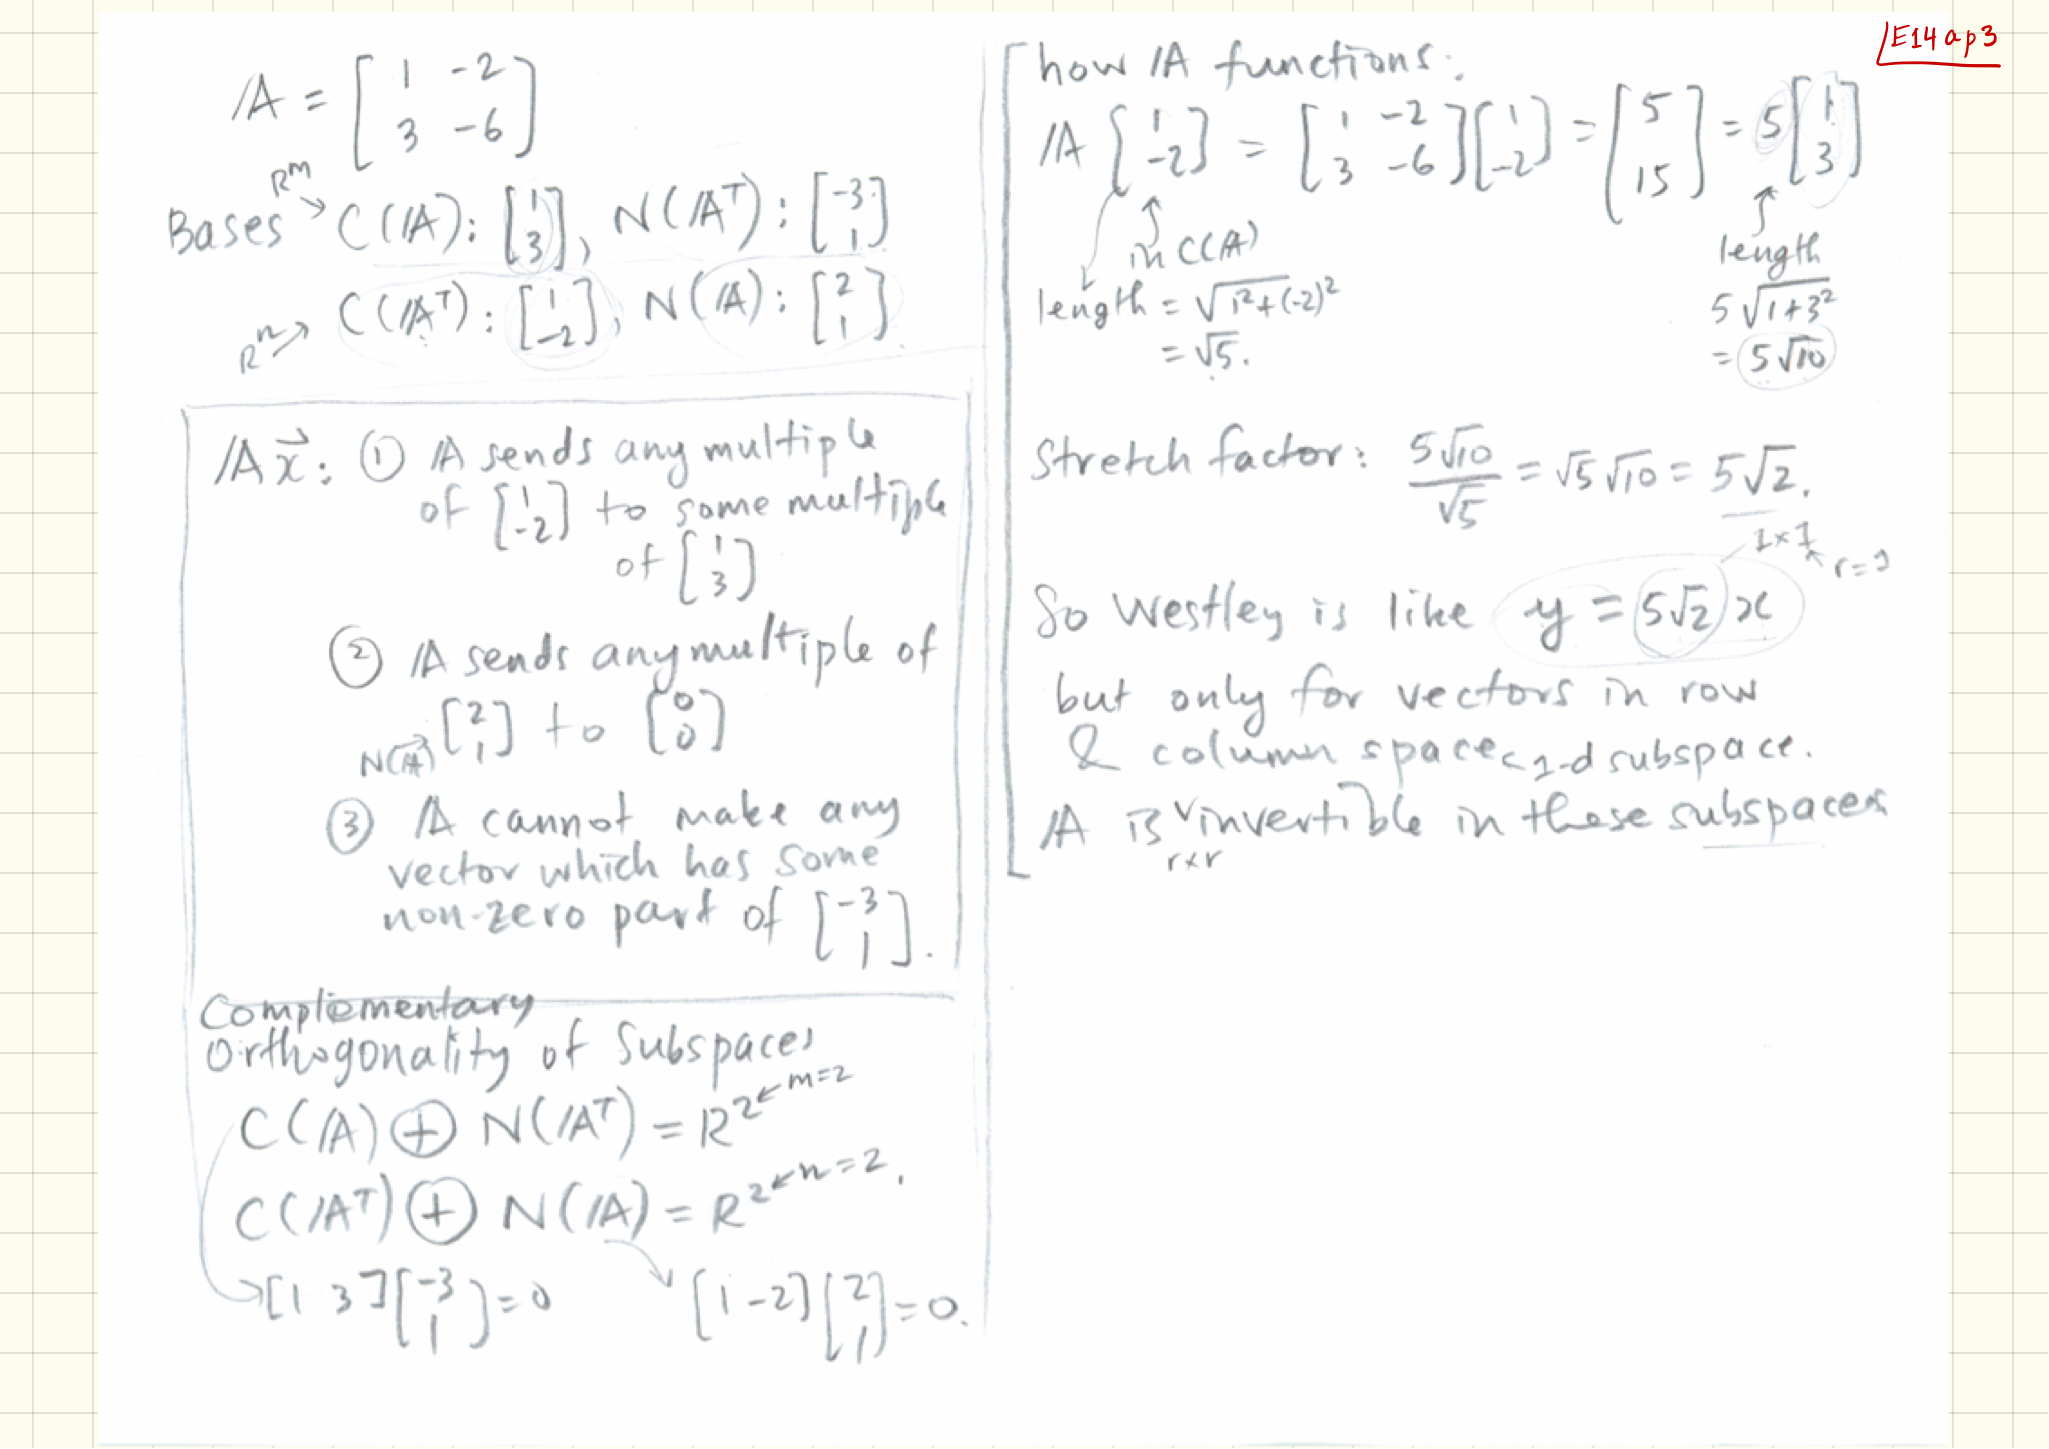 E14ap3
A = [1 -2; 3 -6]
Bases
R^m → C(A): [1; 3], N(A^T): [-3; 1]
R^n → C(A^T): [1; -2], N(A): [2; 1]
Ax⃗: ① A sends any multiple
of [1; -2] to some multiple
of [1; 3]
② A sends any multiple of
N(A) [2; 1] to [0; 0]
③ A cannot make any
vector which has some
non-zero part of [-3; 1].
Complementary
Orthogonality of Subspaces
C(A) ⊕ N(A^T) = R^2 ← m=2
C(A^T) ⊕ N(A) = R^2 ← n=2.
→ [1 3][-3; 1] = 0
→ [1 -2][2; 1] = 0.
how A functions:
A [1; -2] = [1 -2; 3 -6][1; -2] = [5; 15] = 5[1; 3]
in C(A)
length = √(1²+(-2)²)
= √5.
length
5√(1+3²)
= 5√10
Stretch factor: 5√10/√5 = √5 √10 = 5√2.
1x1 ← r=1
So Westley is like y = 5√2 x
but only for vectors in row
& column space < 1-d subspace.
A is rxr invertible in these subspaces